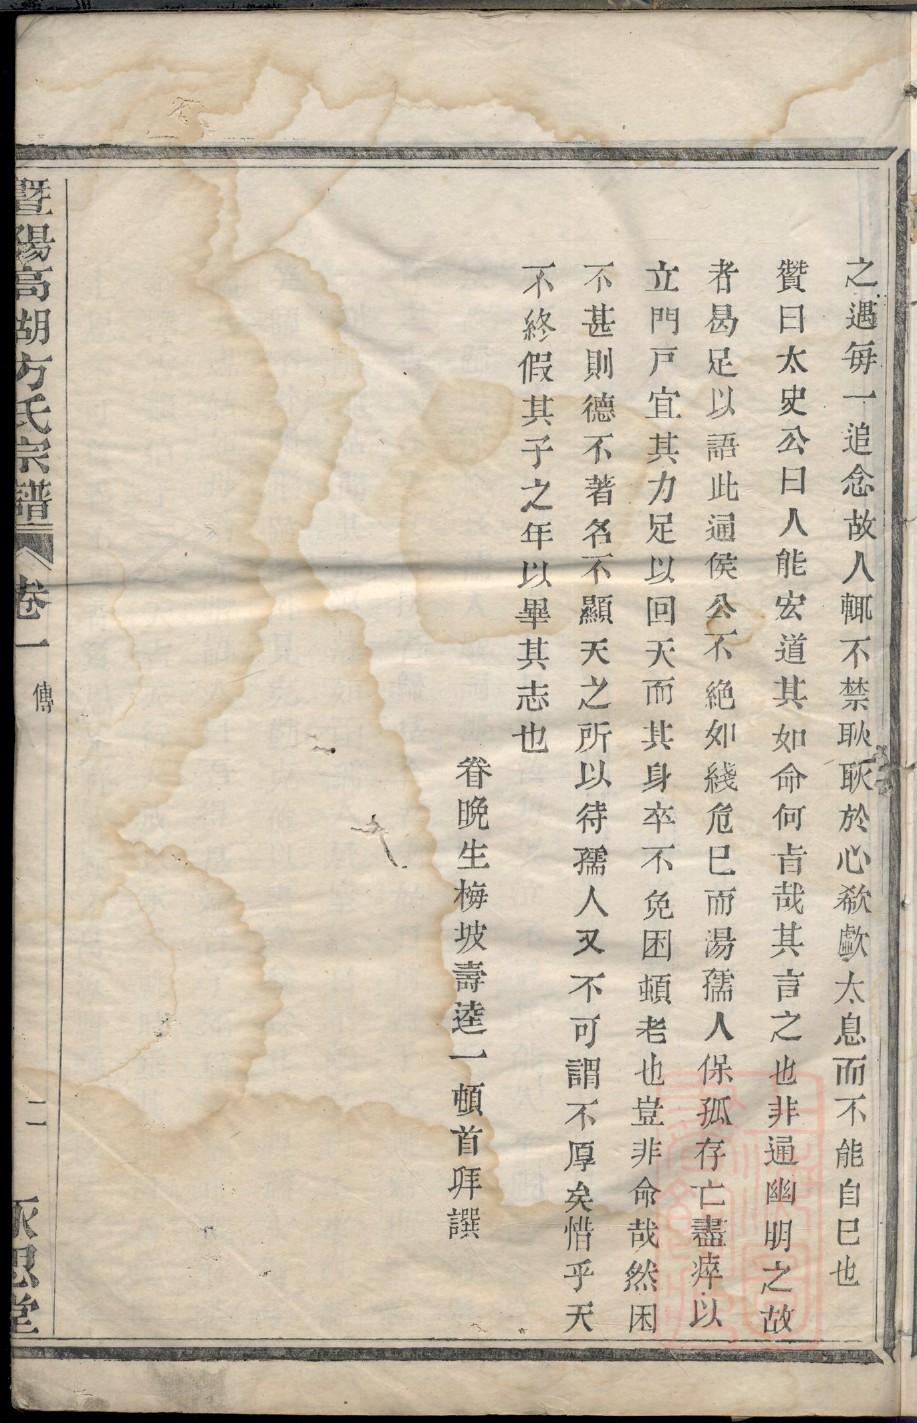 之遇每一追念故人輒不禁耿耿於心欷歔太息而不能自巳也
贊曰太史公曰人能宏道其如命何旨哉其言之也非通幽明之故
者曷足以語此逼侯公不絶如綫危巳而湯孺人保孤存亡盡瘁以
立門戸宜其力足以回天而其身卒不免困頓老也豈非命哉然困
不甚則德不著名不顯天之所以待孺人又不可謂不厚矣惜乎天
不終假其子之年以畢其志也
眷晩生梅坡壽逵一頓首拜譔
暨陽高湖方氏宗譜
卷一
傳
二
永思堂